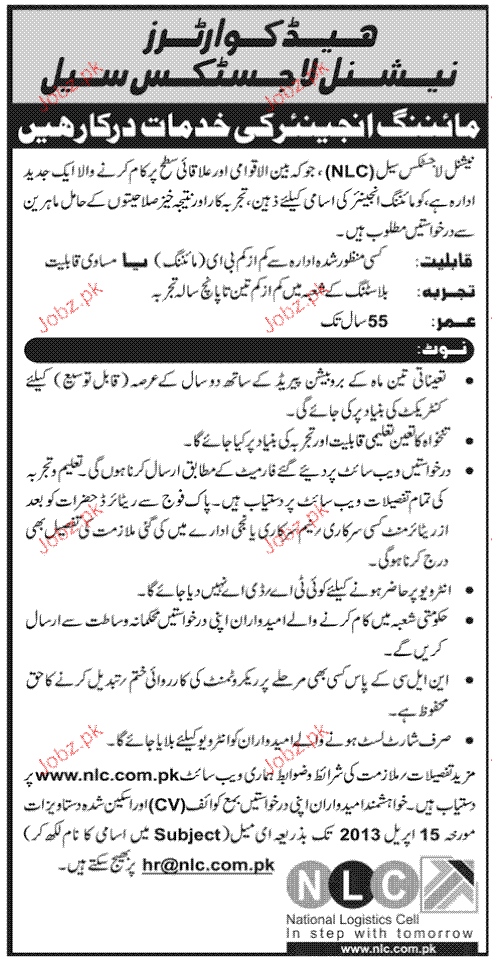 ہیڈ کوارٹرز
نیشنل لاجسٹکس سیل
مائننگ انجینئر کی خدمات درکار ھیں
نیشنل لاجسٹکس سیل (NLC)، جو کہ بین الاقوامی اور علاقائی سطح پر کام کرنے والا ایک جدید
ادارہ ہے، کو مائننگ انجینئر کی اسامی کیلئے ذہین، تجربہ کار اور نتیجہ خیز صلاحیتوں کے حامل ماہرین
سے درخواستیں مطلوب ہیں۔
قابلیت: کسی منظور شدہ ادارہ سے کم از کم بی ای (مائننگ) یا مساوی قابلیت
تجربہ: بلاسٹنگ کے شعبہ میں کم از کم تین تا پانچ سالہ تجربہ
عمر: 55 سال تک
نوٹ:
• تعیناتی تین ماہ کے پروبیشن پیریڈ کے ساتھ دو سال کے عرصہ (قابل توسیع) کیلئے
کنٹریکٹ کی بنیاد پر کی جائے گی۔
• تنخواہ کا تعین تعلیمی قابلیت اور تجربہ کی بنیاد پر کیا جائے گا۔
• درخواستیں ویب سائٹ پر دیئے گئے فارمیٹ کے مطابق ارسال کرنا ہوں گی۔ تعلیم و تجربہ
کی تمام تفصیلات ویب سائٹ پر دستیاب ہیں۔ پاک فوج سے ریٹائرڈ حضرات کو بعد
از ریٹائرمنٹ کسی سرکاری/نیم سرکاری یا نجی ادارے میں کی گئی ملازمت کی تفصیل بھی
درج کرنا ہو گی۔
• انٹرویو پر حاضر ہونے کیلئے کوئی ٹی اے/ڈی اے نہیں دیا جائے گا۔
• حکومتی شعبہ میں کام کرنے والے امیدواران اپنی درخواستیں محکمانہ وساطت سے ارسال
کریں گے۔
• این ایل سی کے پاس کسی بھی مرحلے پر ریکروٹمنٹ کی کارروائی ختم/تبدیل کرنے کا حق
محفوظ ہے۔
• صرف شارٹ لسٹ ہونے والے امیدواران کو انٹرویو کیلئے بلایا جائے گا۔
مزید تفصیلات/ملازمت کی شرائط و ضوابط ہماری ویب سائٹ www.nlc.com.pk پر
دستیاب ہیں۔ خواہشمند امیدواران اپنی درخواستیں بمع کوائف (CV) اور اسکین شدہ دستاویزات
مورخہ 15 اپریل 2013 تک بذریعہ ای میل (Subject میں اسامی کا نام لکھ کر)
hr@nlc.com.pk پر بھیج سکتے ہیں۔
NLC
National Logistics Cell
In step with tomorrow
www.nlc.com.pk
Jobz.pk
Jobz.pk
Jobz.pk
Jobz.pk
Jobz.pk
Jobz.pk
Jobz.pk
Jobz.pk
Jobz.pk
Jobz.pk